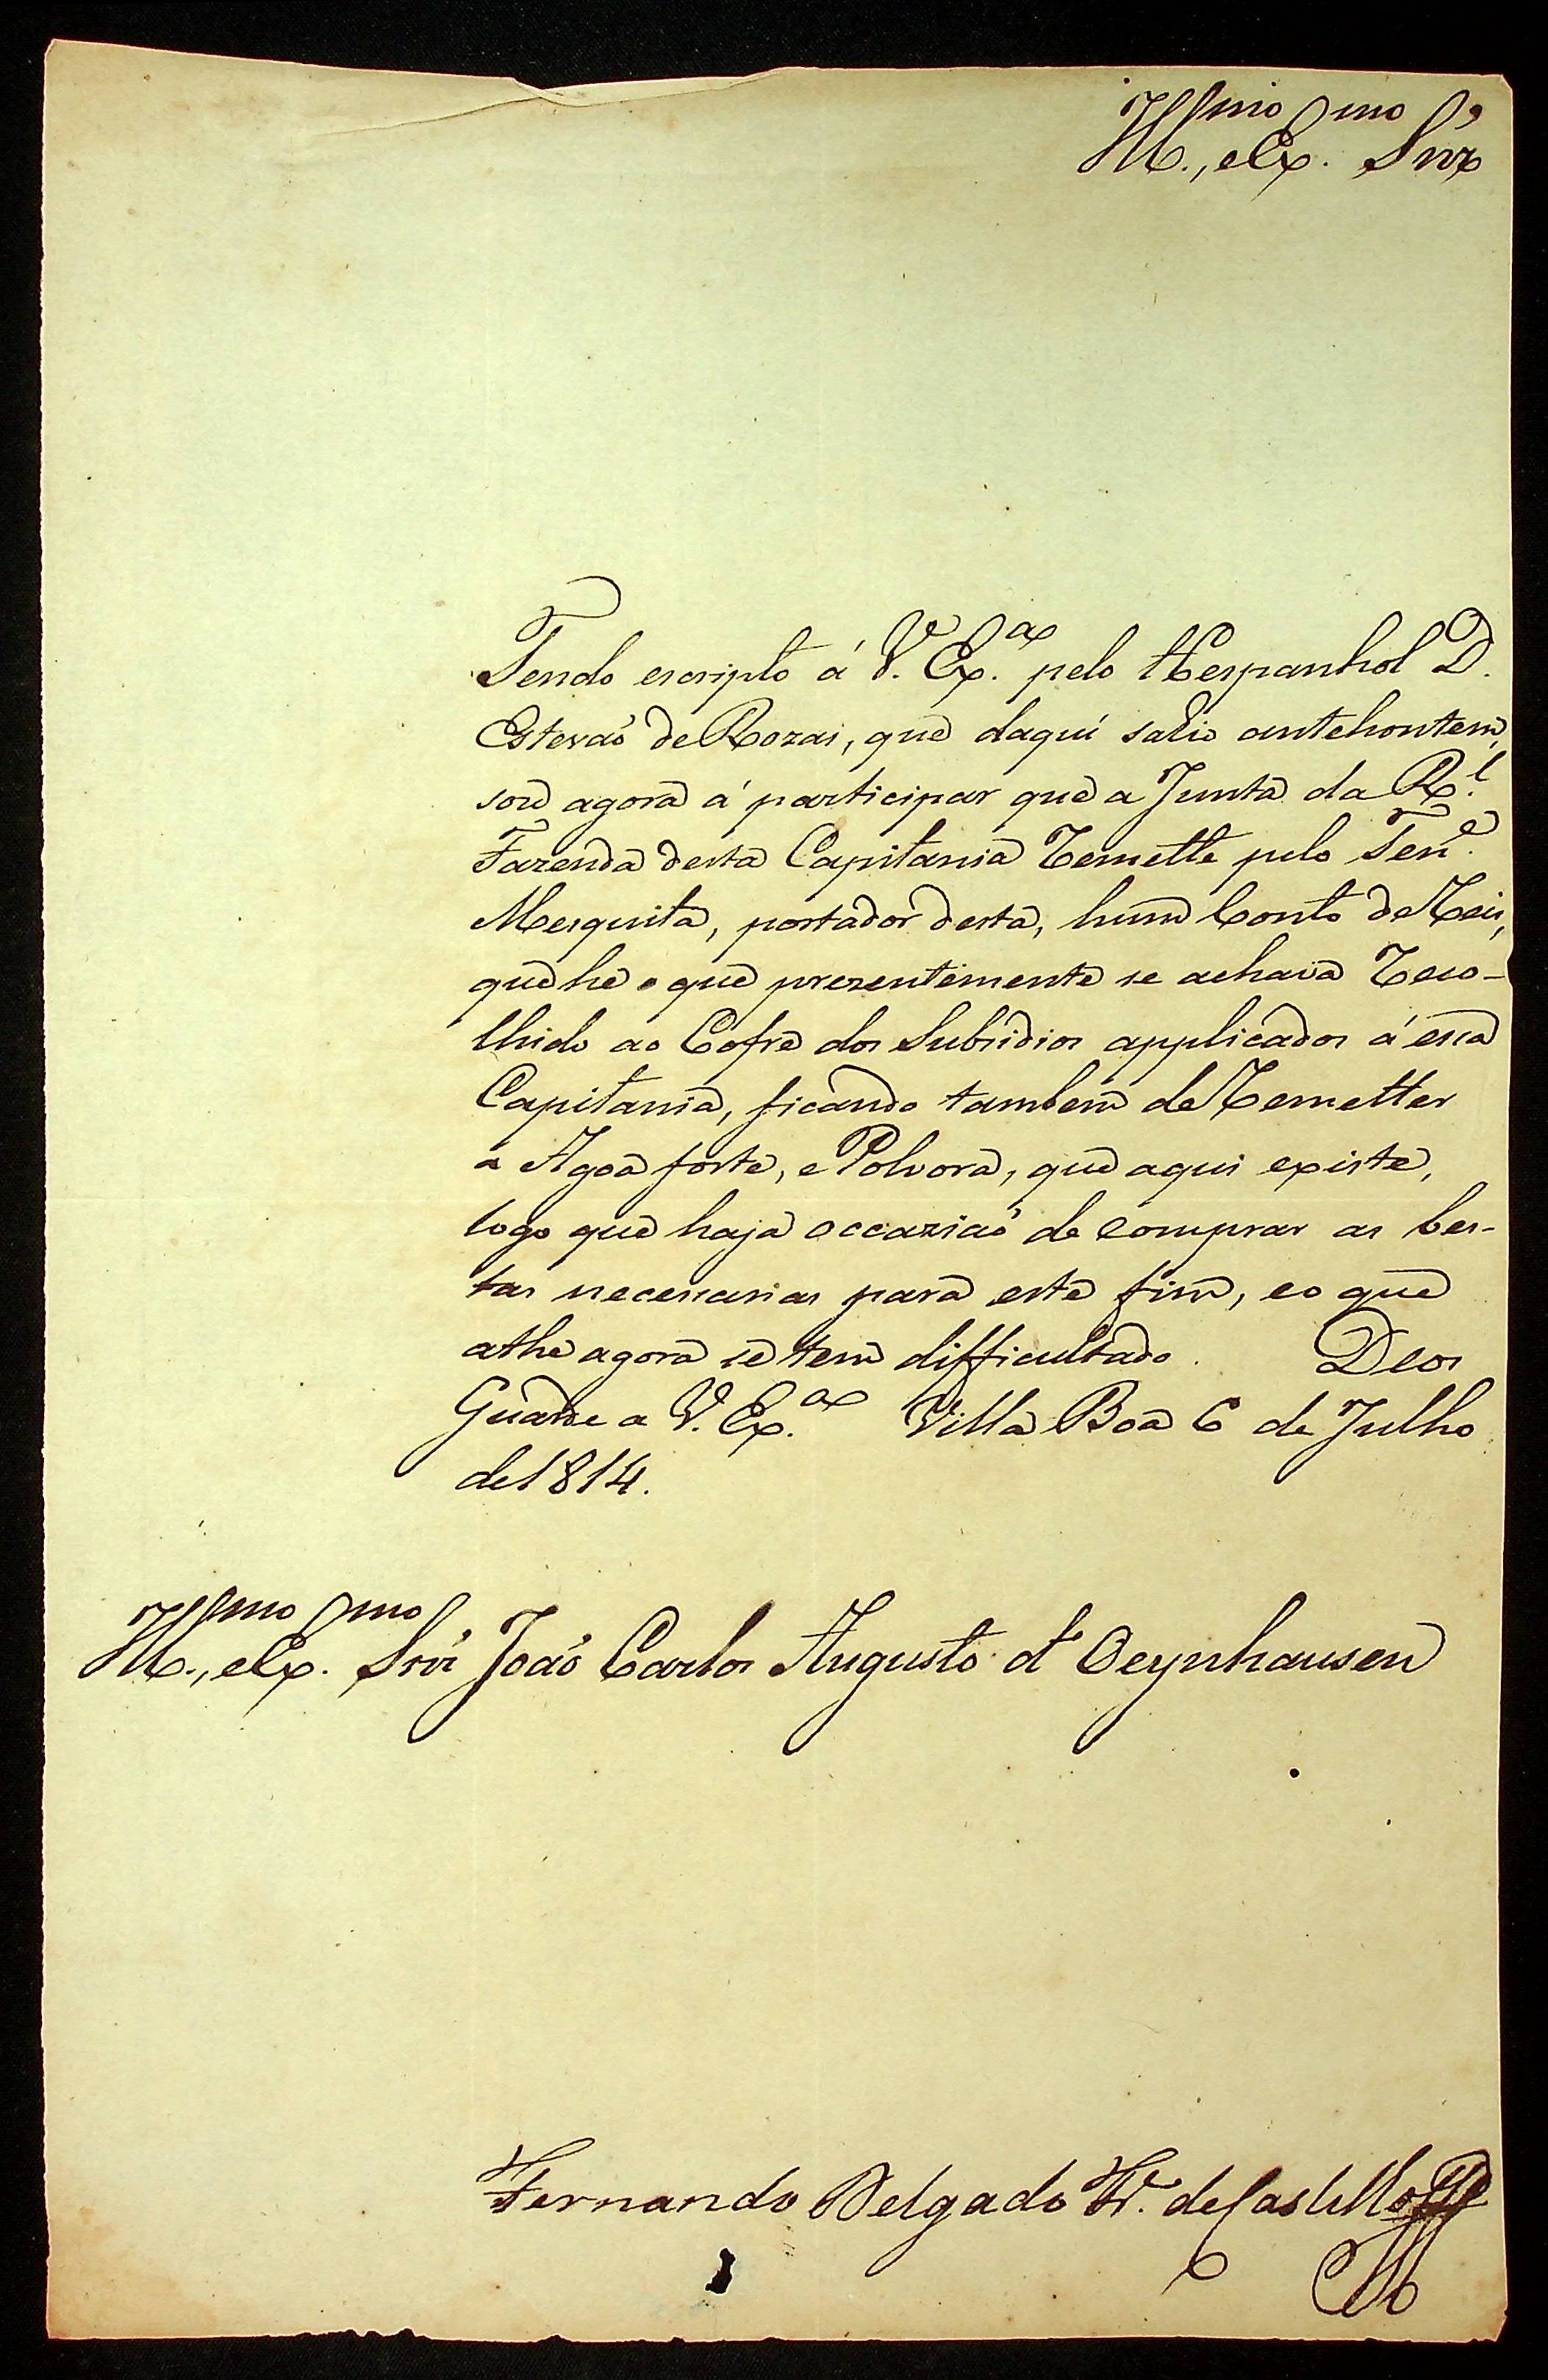 Ill.mo, e Ex.mo Snr.
Tendo escripto á V. Ex.ª pelo Hespanhol D.
Estevaõ de Rozas, que daqui sahio antehontem,
sou agora á participar que a Junta da R.l
Fazenda desta Capitania Remette pelo Ten.e
Mesquita, portador desta, hum Conto de Reis,
que he o que prezentemente se achava Reco-
lhido ao Cofre dos Subsidios applicados á essa
Capitania, ficando tambem de Remetter
a Agoa forte, e Polvora, que aqui existe,
logo que haja occaziaõ de comprar as bes-
tas necessarias para este fim, e o que
athe agora se tem difficultado. Deos
Guarde a V. Ex.ª Villa Boa 6 de Julho
de 1814.
Ill.mo, e Ex.mo Snr João Carlos Augusto d'Oeynhausen
Fernando Delgado Fr. de Castilho